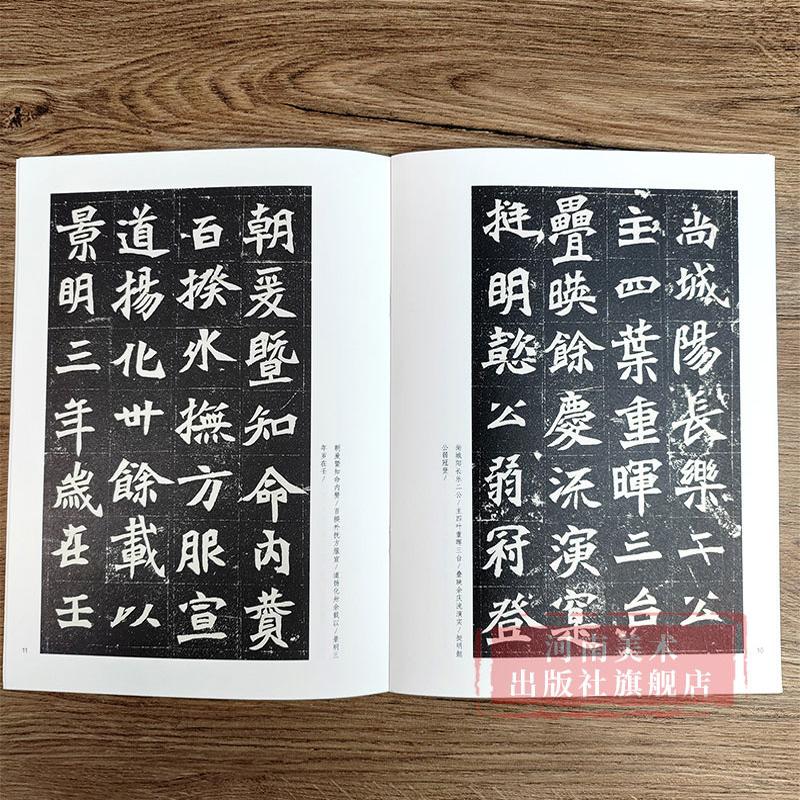 尚城陽長樂二公
主四葉重暉三台
疊暎餘慶流演寔
挺明懿公弱冠登
尚城阳长乐二公/主四叶重晖三台/叠映余庆流演实/挺明懿
公弱冠登/
10
朝爰暨知命內贊
百揆外撫方服宣
道揚化卅餘載以
景明三年歲在壬
朝爰暨知命内赞/百揆外抚方服宣/道扬化卅余载以/景明三
年岁在壬/
11
河南美术
出版社旗舰店